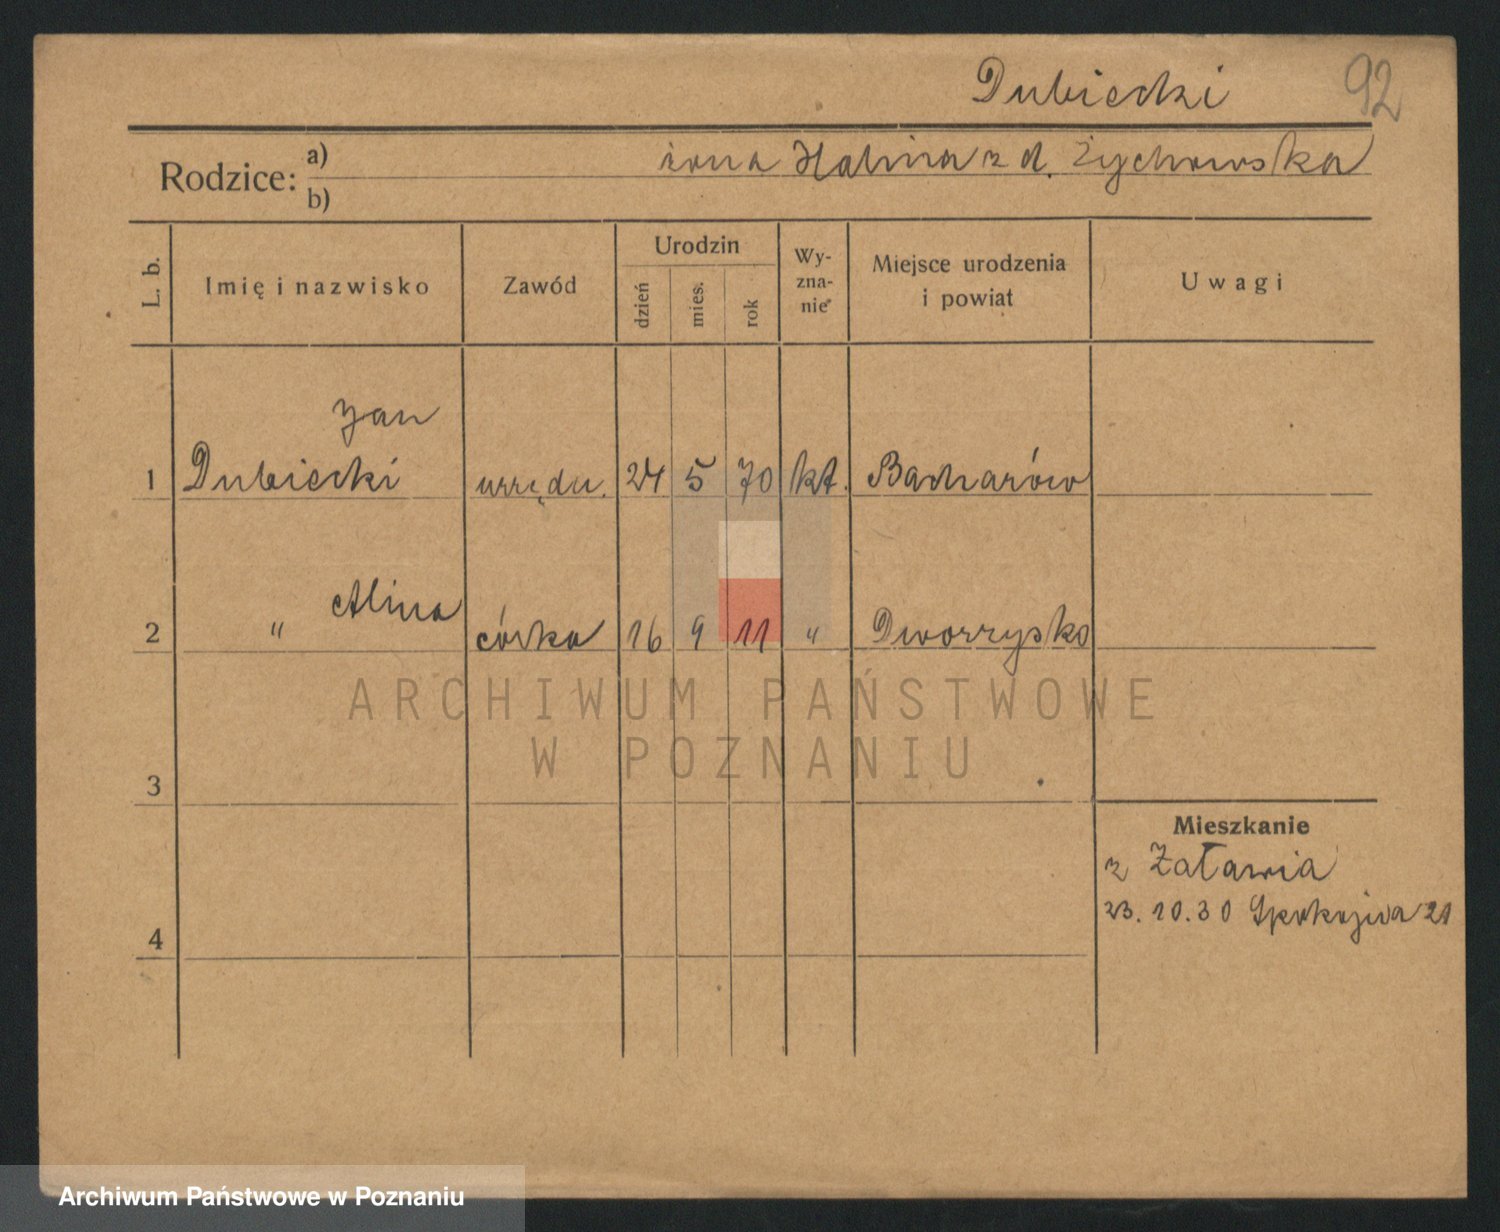 Dubiecki 92
Rodzice: a) żona Halina z d. Żychowska
b)
L. b. Imię i nazwisko Zawód Urodzin dzień mies. rok Wy-zna-nie Miejsce urodzenia i powiat Uwagi
Jan
1 Dubiecki urzędn. 24 5 70 kt. Bacharów
Alina
2 " córka 16 9 11 " Dworzysko
ARCHIWUM PAŃSTWOWE
W POZNANIU
3
Mieszkanie
z Załawia
23.10.30 Spokojna 21
4
Archiwum Państwowe w Poznaniu